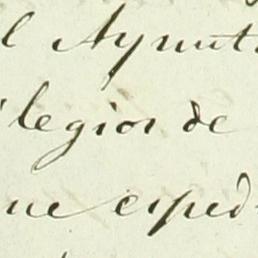 l Ayunt.
legios de
ue esped